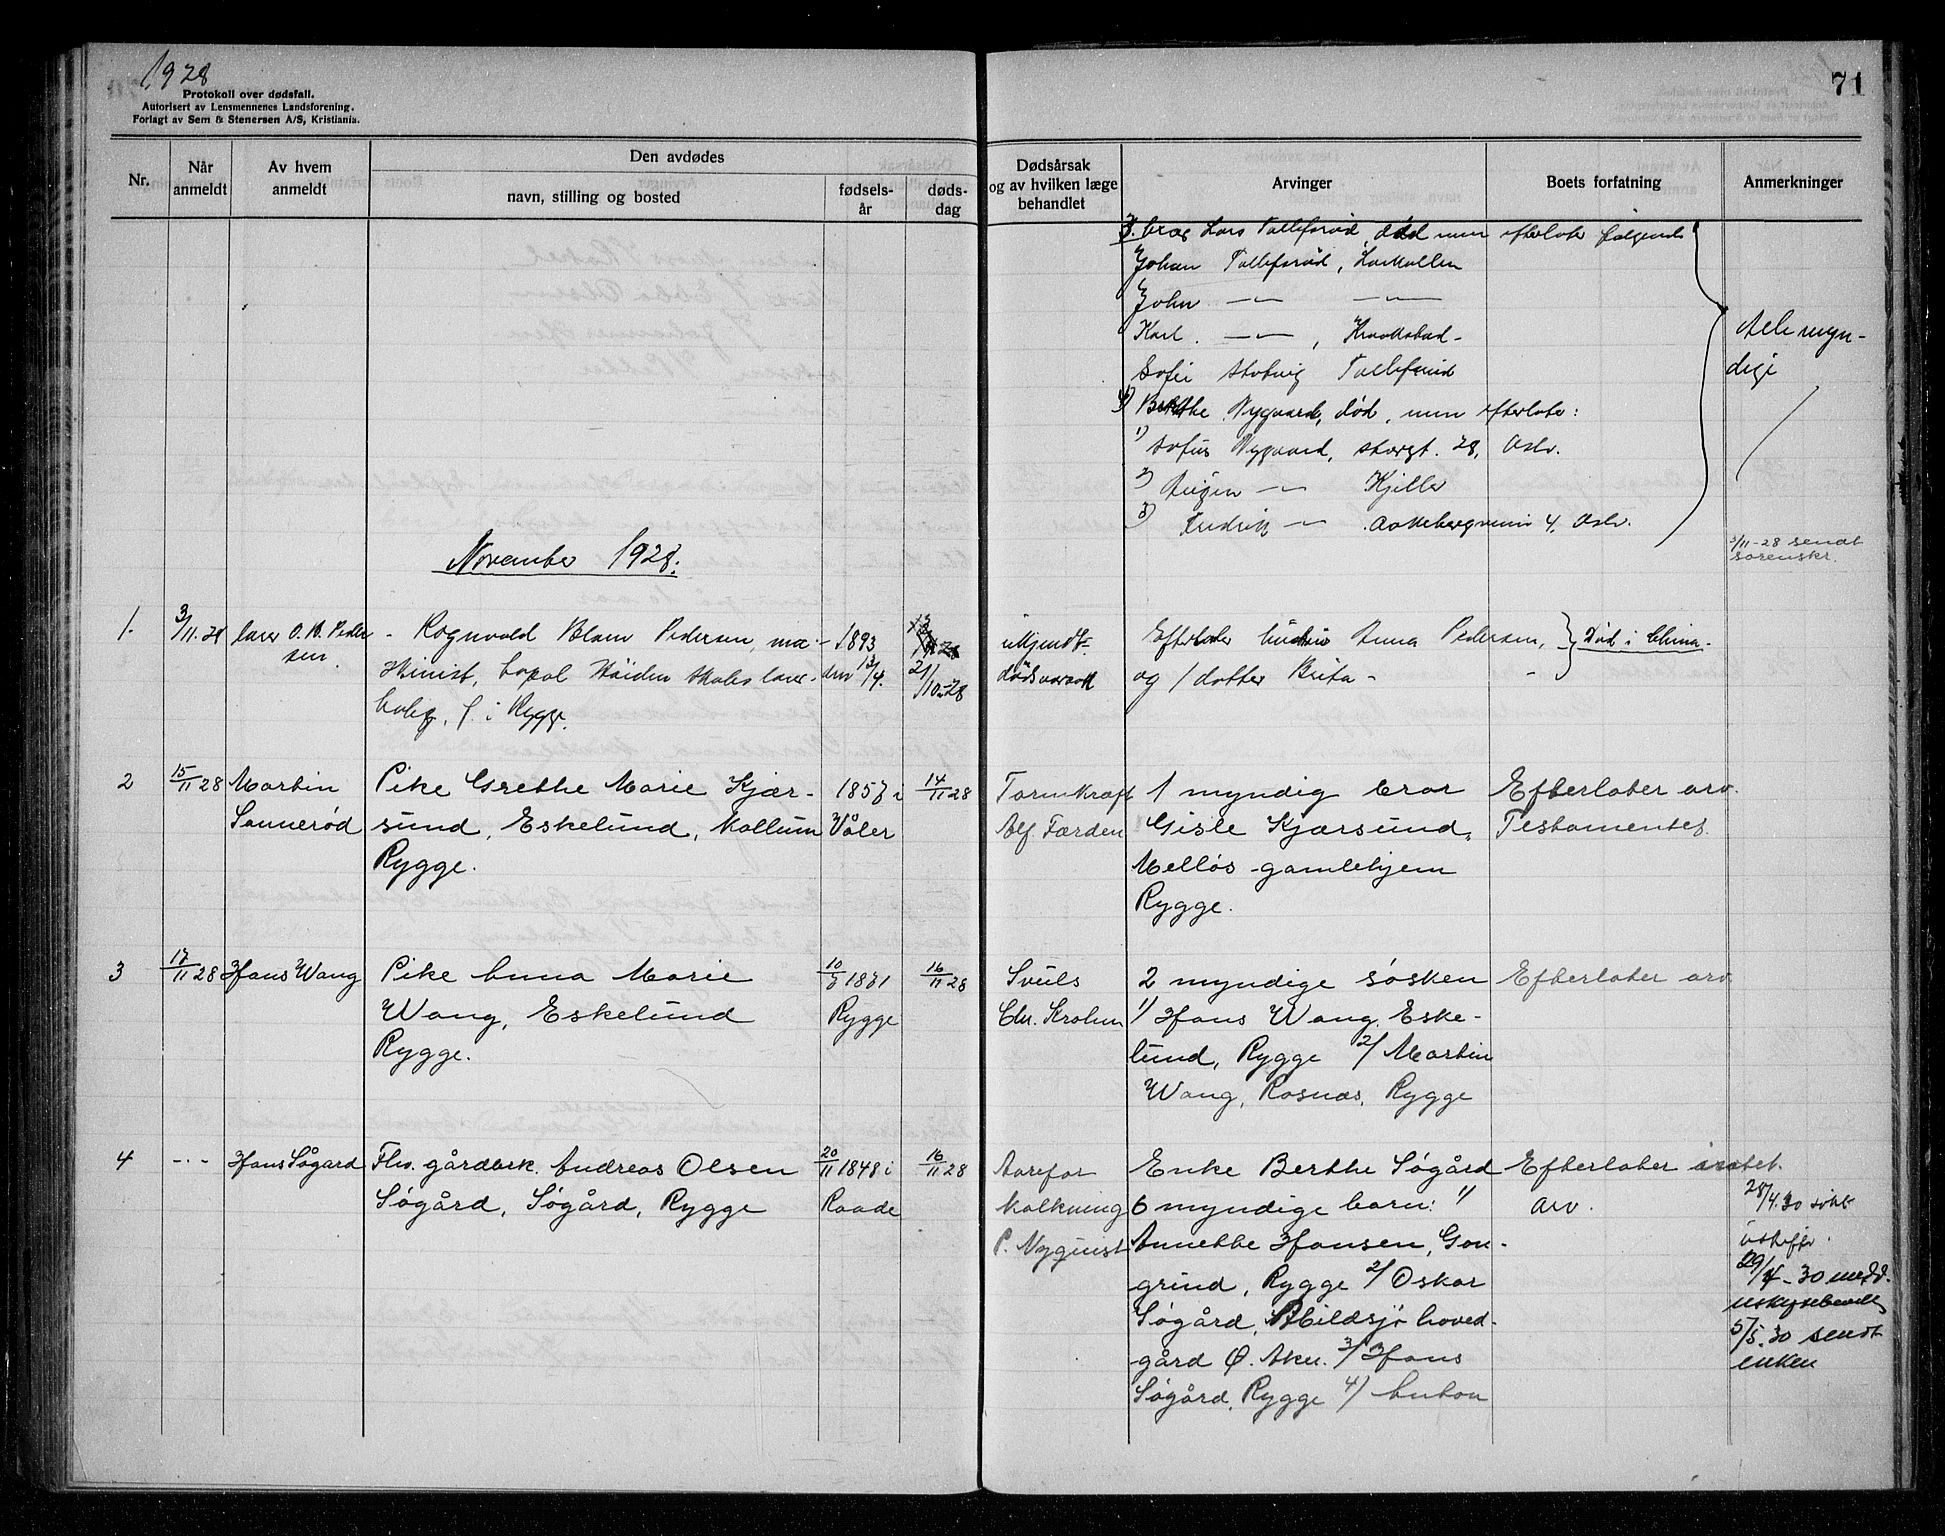 1928
Protokoll over dødsfall.
Autorisert av Lensmennenes Landsforening.
Forlagt av Sem & Stenersen A/S, Kristiania.
71
Nr.
Når anmeldt
Av hvem anmeldt
Den avdødes
navn, stilling og bosted
fødsels-år
døds-dag
Dødsårsak og av hvilken læge behandlet
Arvinger
Boets forfatning
Anmerkninger
3. bror Lars Tollefsrød, død men efterlater følgende
Johan Tollefsrød, Larkollen
John —"— —"—
Karl. —"—, Kraakstad-
Sofie Tollefsrød
Alle myn-
dige
4) Berthe Nygaard, død, men efterlater:
1) Sofus Nygaard, storgt. 28, Oslo.
2) —"— Kjeller
3) Fredrik —"— Aakebergveien 4, Oslo.
3/11-28 sendt
sorenskr.
November 1928.
1. 3/11.28 lærer O. B. Peder-
sen.
- Rognvald Blom Pedersen, ma-
skinist, Høiden skoles lærer-
bolig, f. i Rygge.
1893
den 13/4.
21/10-28
ukjendt
dødsaarsak
Efterlater hustru Anna Pedersen,
og 1 datter Brita -
Død i China-
2 15/11 28 Martin
Sannerød
Pike Grethe Marie Kjær-
sund, Eskelund, Kallum
Rygge.
1857 i
Våler
14/11 28
Tarmkræft
Alf Færden
1 myndig bror
Gisle Kjærsund,
Melløs gamlehjem
Rygge.
Efterlater arv.
Testamentet.
3 17/11 28 Hans Wang
Pike Anna Marie
Wang, Eskelund
Rygge.
1871
Rygge
16/11 28
Svuls
Chr. Krohn
2 myndige søsken
1/ Hans Wang, Eske-
lund, Rygge 2/ Martin
Wang, Rosnæs, Rygge
Efterlater arv.
4 -"- Hans Søgard
Fhv. gårdbrk. Andreas Olsen
Søgård, Søgård, Rygge
20/11 1848 i
Raade
16/11 28
Aarefor
kalkning
P. Nyquist
Enke Berthe Søgård
6 myndige barn: 1/
Annethe Hansen, Gon-
grind, Rygge 2/ Oskar
Søgård, Abildsjø hoved-
gård Ø. Aker. 3/ Hans
Søgård, Rygge 4/ Anton
Efterlater
arv.
28/4.30 søkt
uskifte.
29/4-30 medd.
uskiftebevill.
5/5.30 sendt
enken